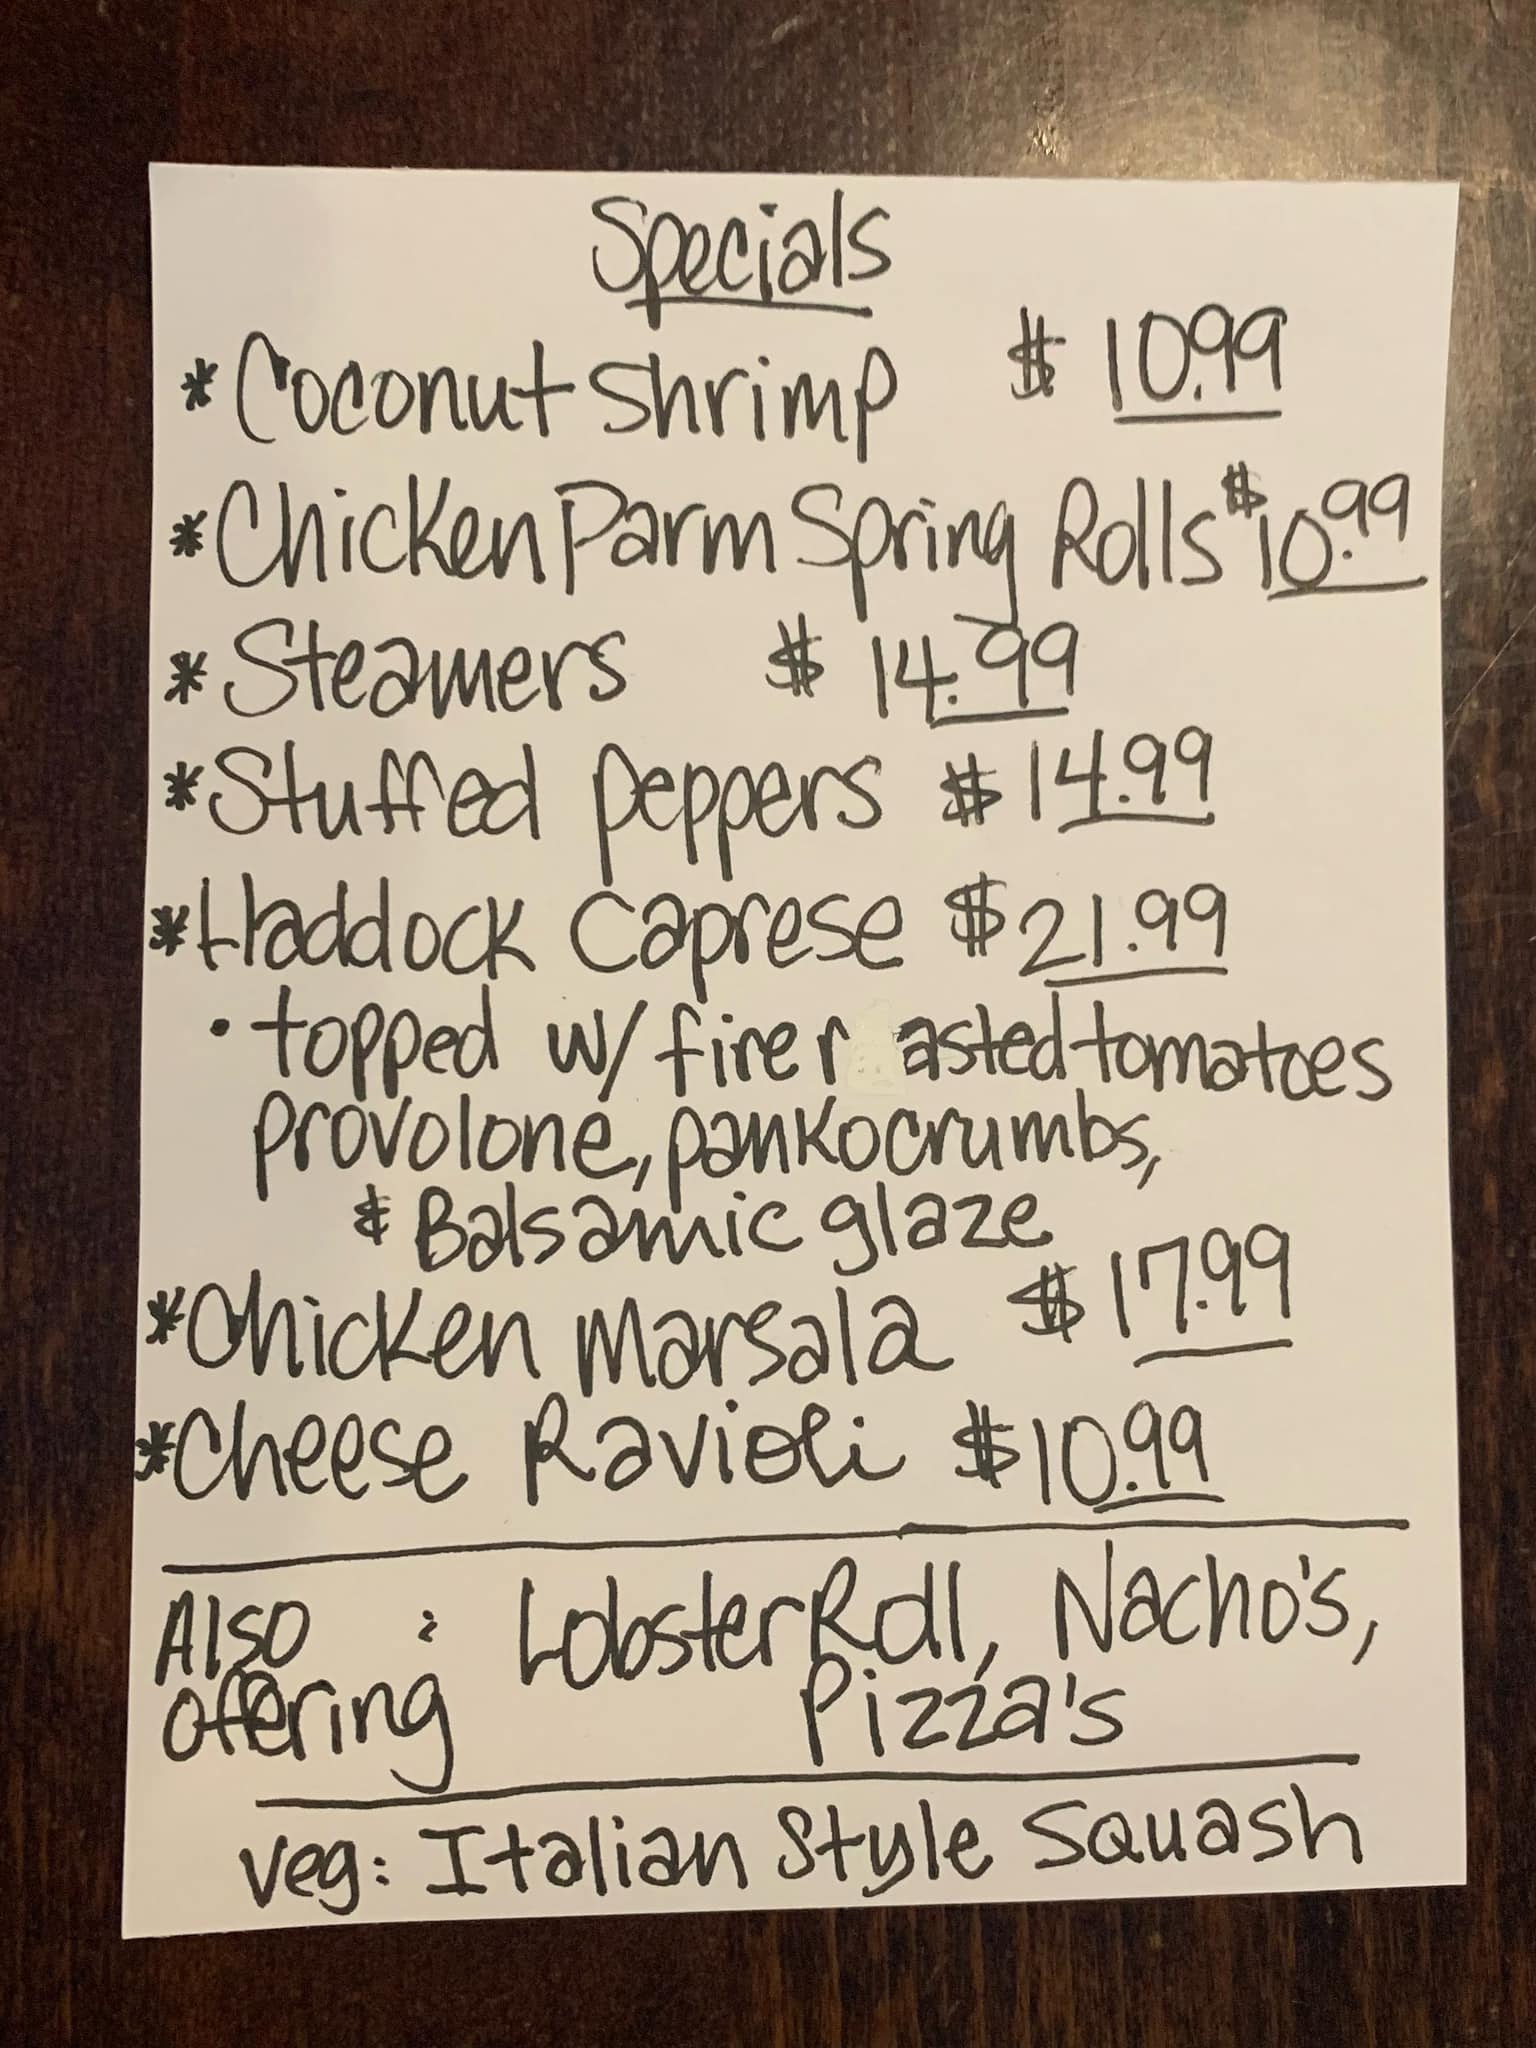 Specials
* Coconut Shrimp $10.99
* Chicken Parm Spring Rolls $10.99
* Steamers $14.99
* Stuffed peppers $14.99
* Haddock Caprese $21.99
• topped w/ fire r asted tomatoes
provolone, panko crumbs,
& Balsamic glaze
* Chicken Marsala $17.99
* Cheese Ravioli $10.99
Also offering : Lobster Roll, Nacho's,
Pizza's
veg: Italian Style Squash